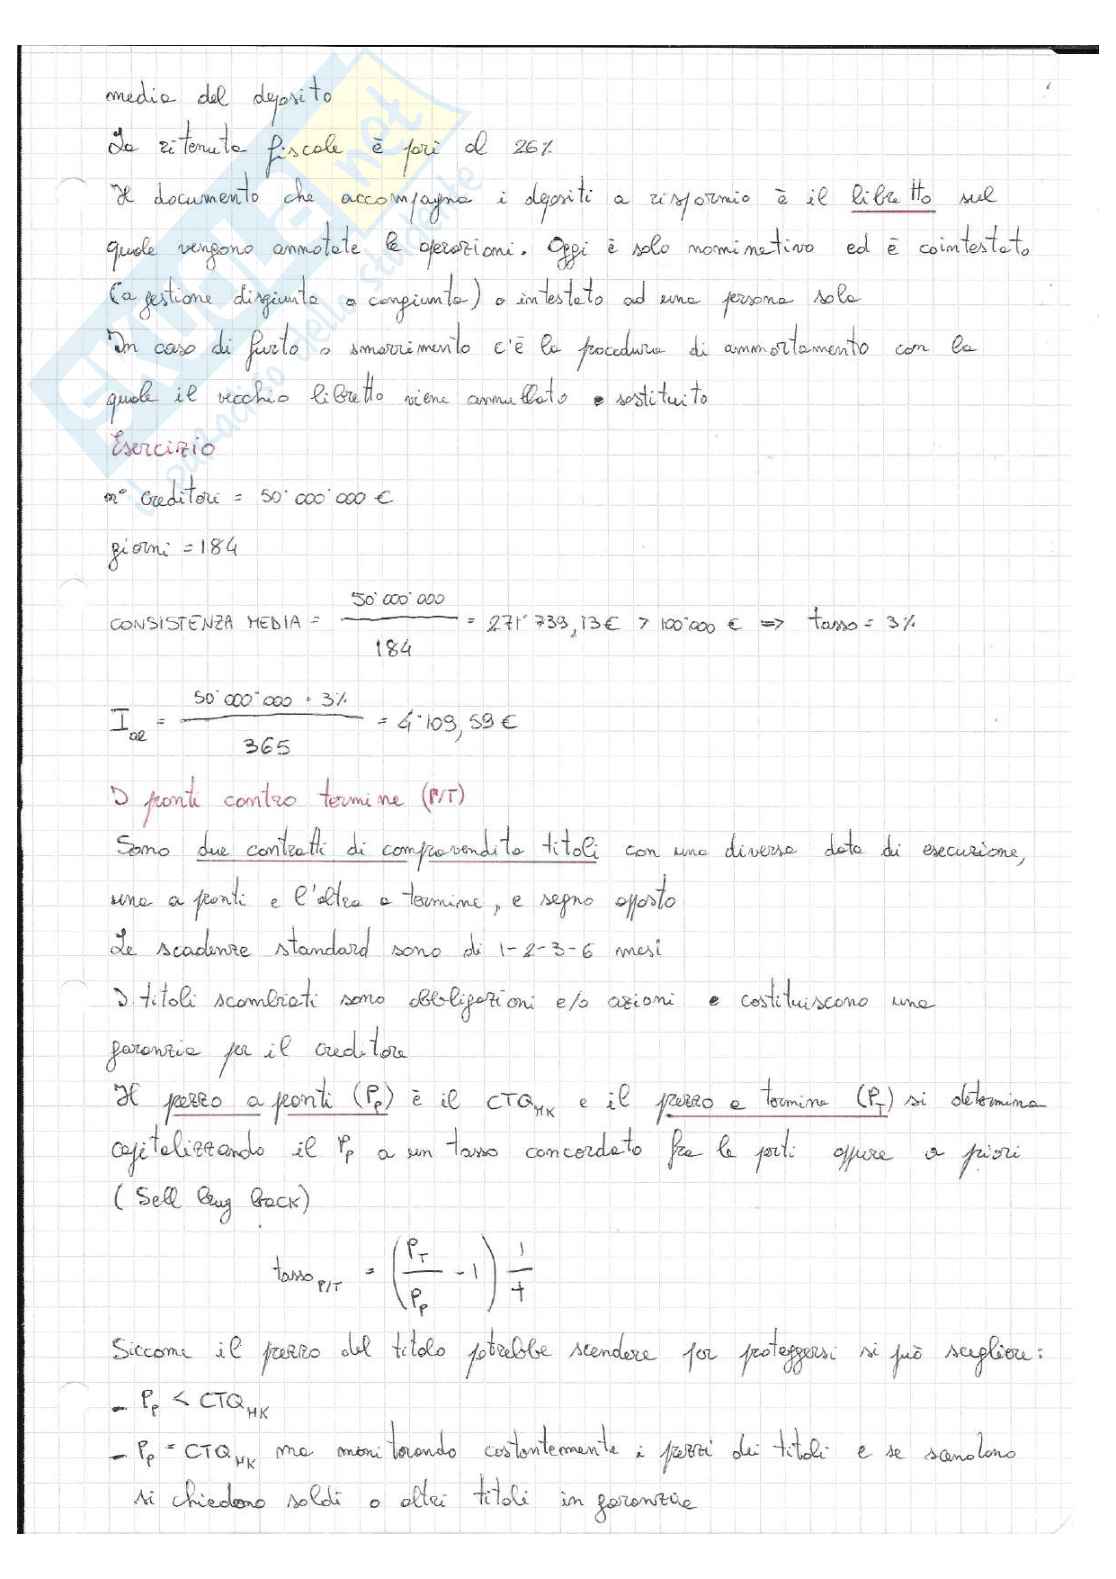 media del deposito
La ritenuta fiscale è pari al 26%
Il documento che accompagna i depositi a risparmio è il libretto sul
quale vengono annotate le operazioni. Oggi è solo nominativo ed è cointestato
(a gestione disgiunta o congiunta) o intestato ad una persona sola
In caso di furto o smarrimento c'è la procedura di ammortamento con la
quale il vecchio libretto viene annullato e sostituito
Esercizio
n° Creditori = 50'000'000 €
giorni = 184
CONSISTENZA MEDIA = 50'000'000 / 184 = 271'739,13 € > 100'000 € => tasso = 3%
I = 50'000'000 · 3% / 365 = 4'109,59 €
I pronti contro termine (P/T)
Sono due contratti di compravendita titoli con una diversa data di esecuzione,
uno a pronti e l'altro a termine, e segno opposto
Le scadenze standard sono di 1-2-3-6 mesi
I titoli scambiati sono obbligazioni e/o azioni e costituiscono una
garanzia per il creditore
Il prezzo a pronti (Pp) è il CTQ MK e il prezzo a termine (PT) si determina
capitalizzando il Pp a un tasso concordato fra le parti oppure a priori
(Sell buy back)
tasso P/T = (PT / Pp - 1) 1/t
Siccome il prezzo del titolo potrebbe scendere per proteggersi si può scegliere:
- Pp < CTQ MK
- Pp = CTQ MK ma monitorando costantemente i prezzi dei titoli e se scendono
si chiedono soldi o altri titoli in garanzia
SKUOLA.net